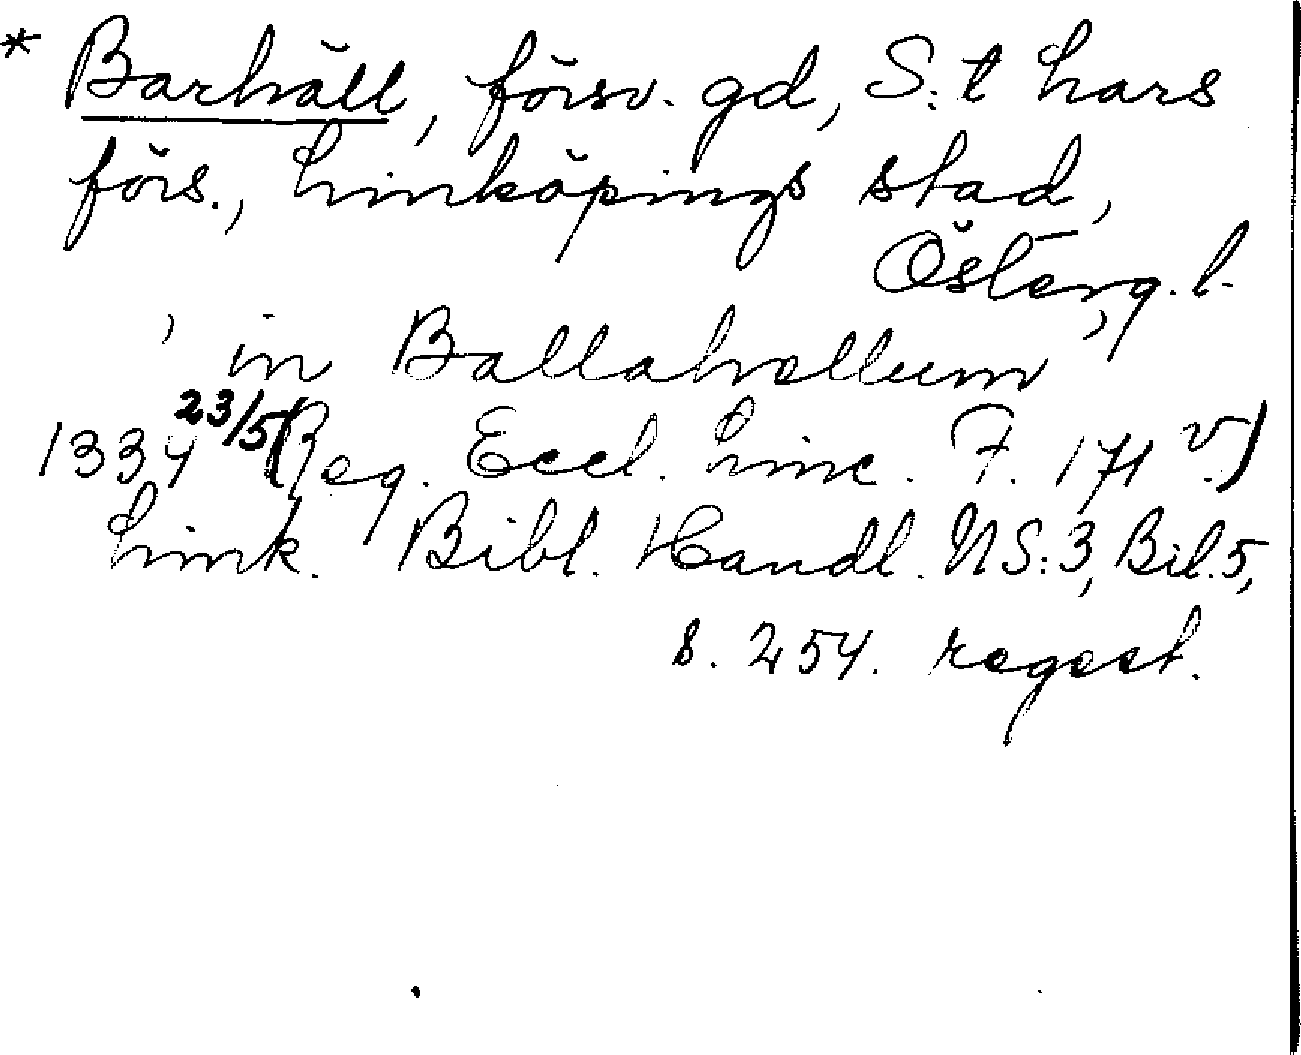 * Barhäll, försv. gd, S:t Lars
förs., Linköpings stad,
Österg. l.
, in Ballahællum,
1334 23/5 (Reg. Eccl. Linc. F. 171 v.)
Link. Bibl. Handl. NS:3, Bil. 5,
s. 254. regest.